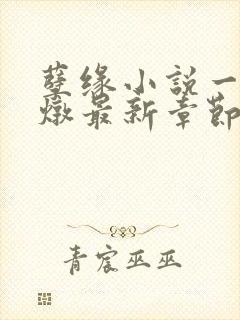 孽缘小説一
燉最新章節
青宸巫巫